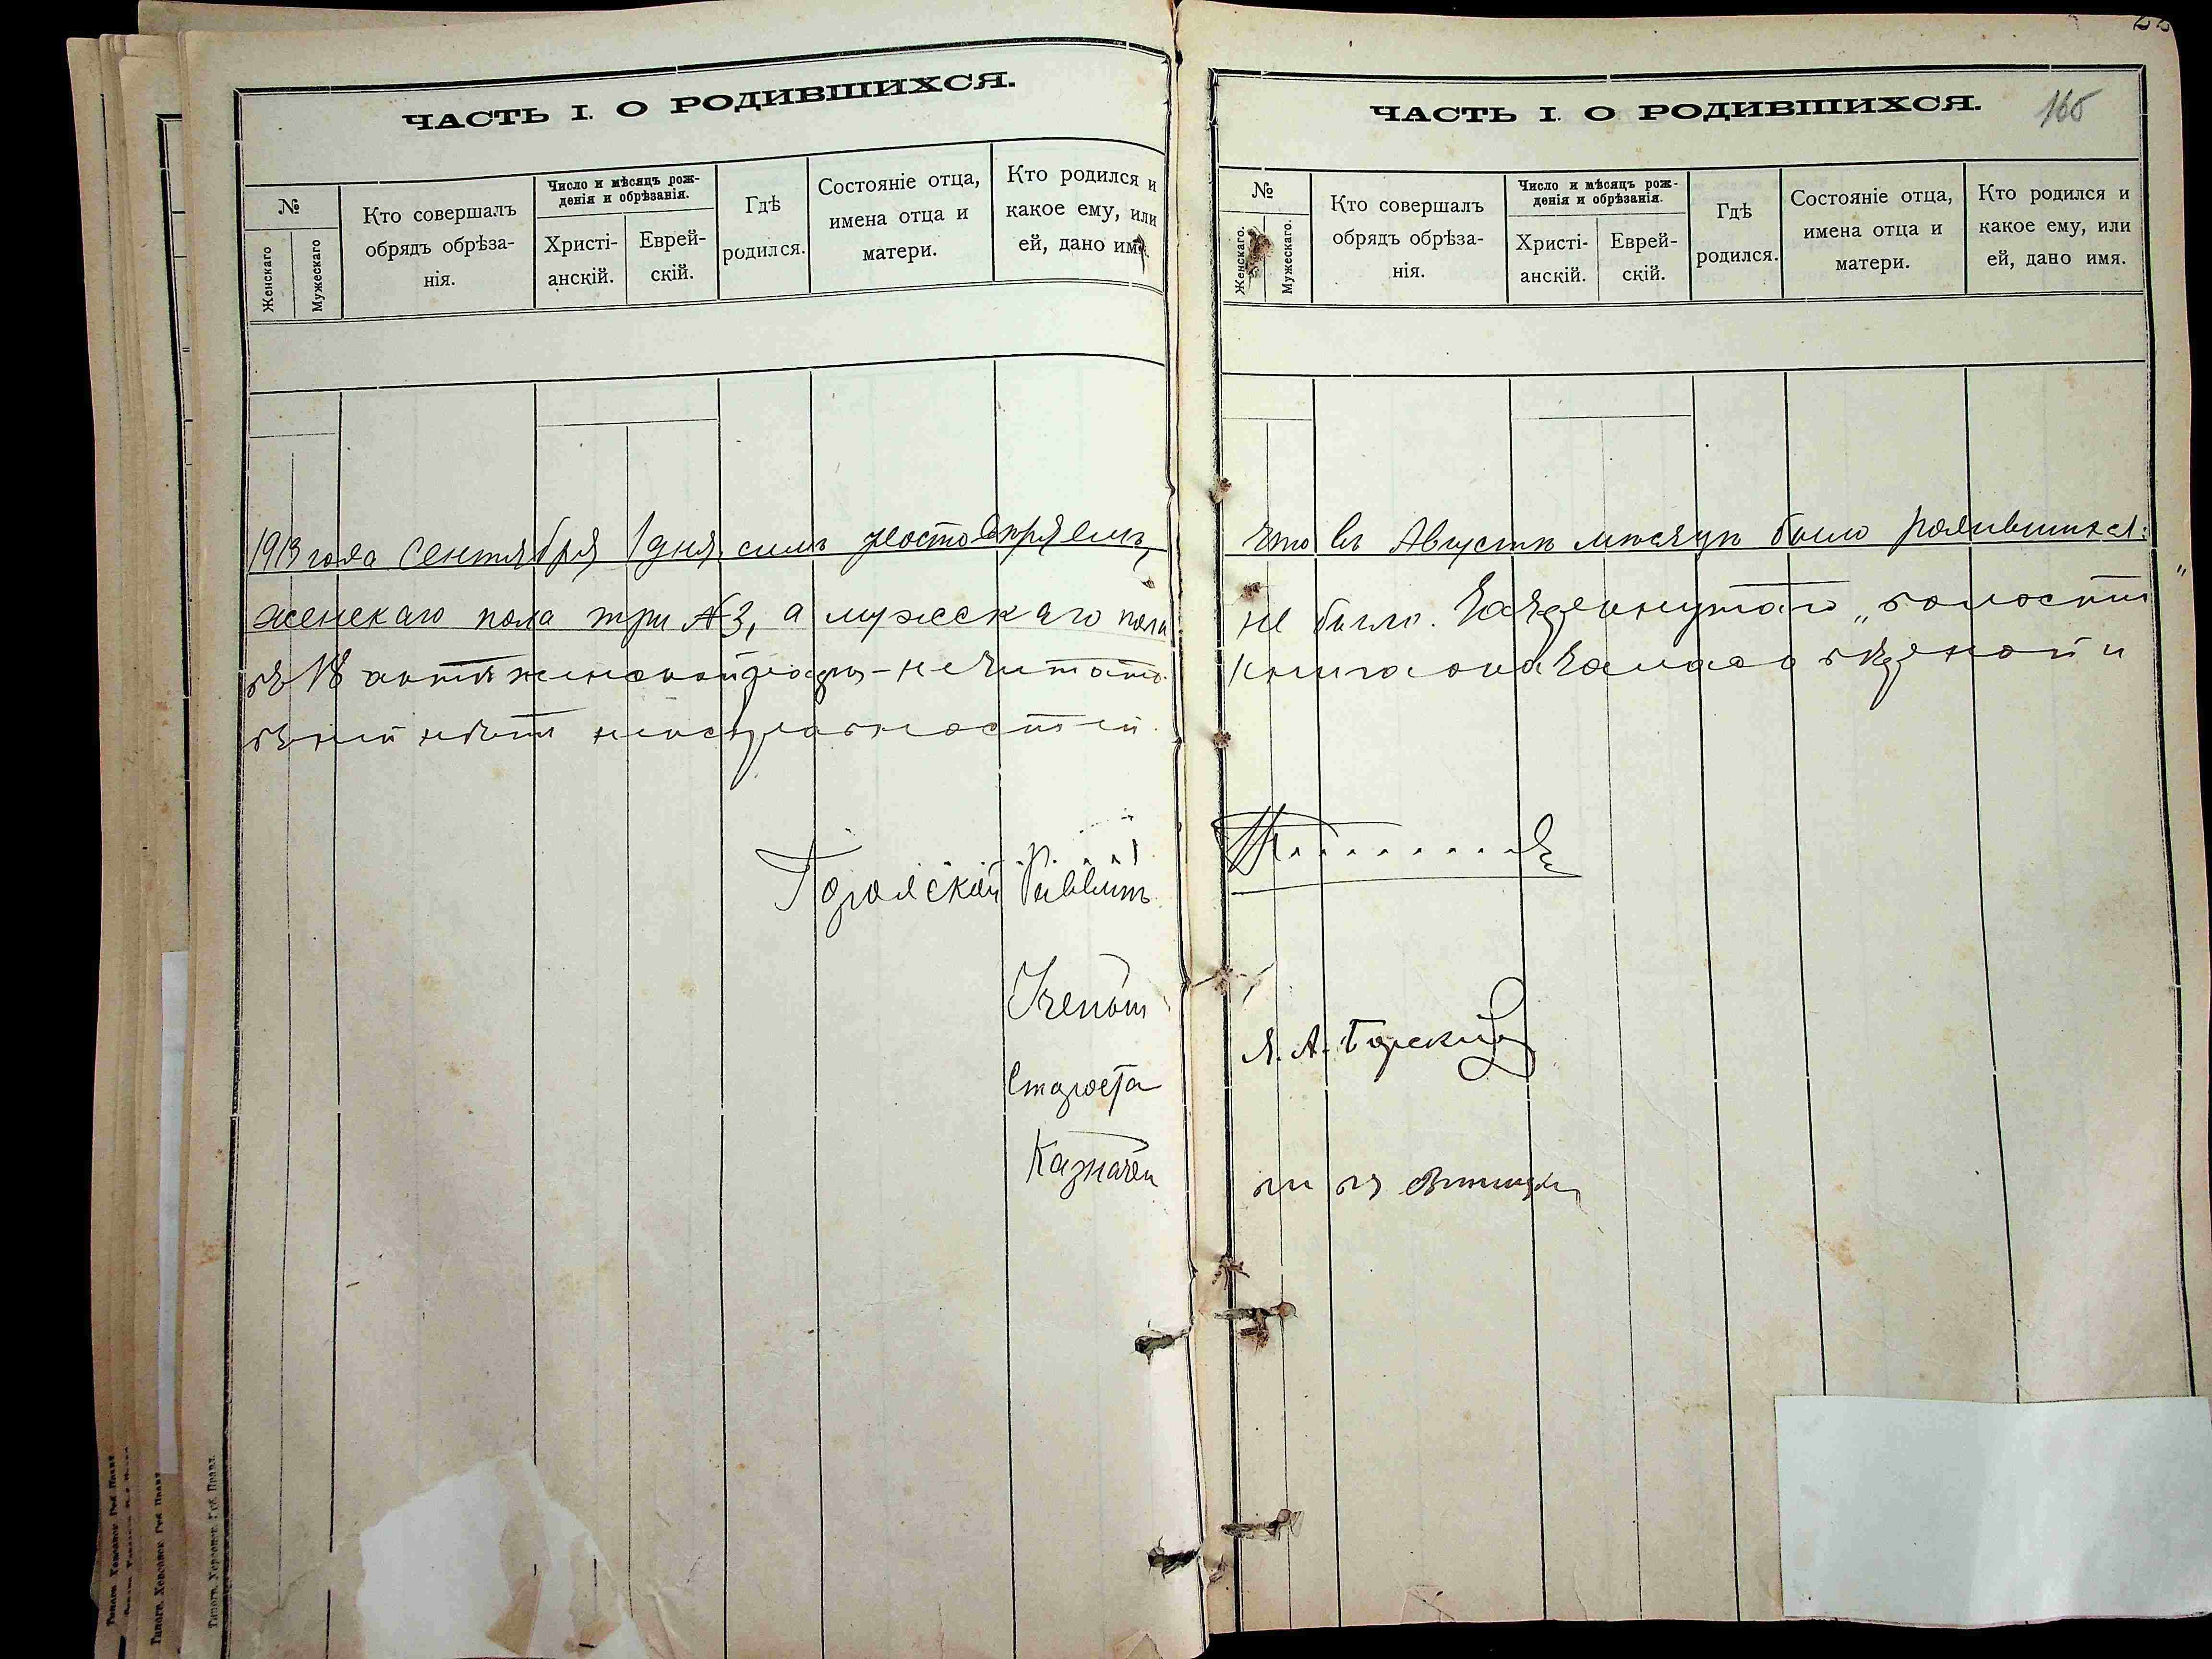 ЧАСТЬ I. О РОДИВШИХСЯ.
№
Женскаго
Мужескаго
Кто совершалъ
обрядъ обрѣза-
нія.
Число и мѣсяцъ рож-
денія и обрѣзанія.
Христі-
анскій.
Еврей-
скій.
Гдѣ
родился.
Состояніе отца,
имена отца и
матери.
Кто родился и
какое ему, или
ей, дано имя.
1913 года Сентября 1 дня, симъ удостовѣряемъ,
женскаго пола три №3, а мужескаго пола
въ 18 актѣ женской графы - не читать.
въ ней нѣтъ
Городской Раввинъ
Ученый
Староста
Казначей
Типогр. Херсонск. Губ. Правл.
ЧАСТЬ I. О РОДИВШИХСЯ.
165
№
Женскаго.
Мужескаго.
Кто совершалъ
обрядъ обрѣза-
нія.
Число и мѣсяцъ рож-
денія и обрѣзанія.
Христі-
анскій.
Еврей-
скій.
Гдѣ
родился.
Состояніе отца,
имена отца и
матери.
Кто родился и
какое ему, или
ей, дано имя.
что въ Августѣ мѣсяцѣ было родившихся:
не было.
книга